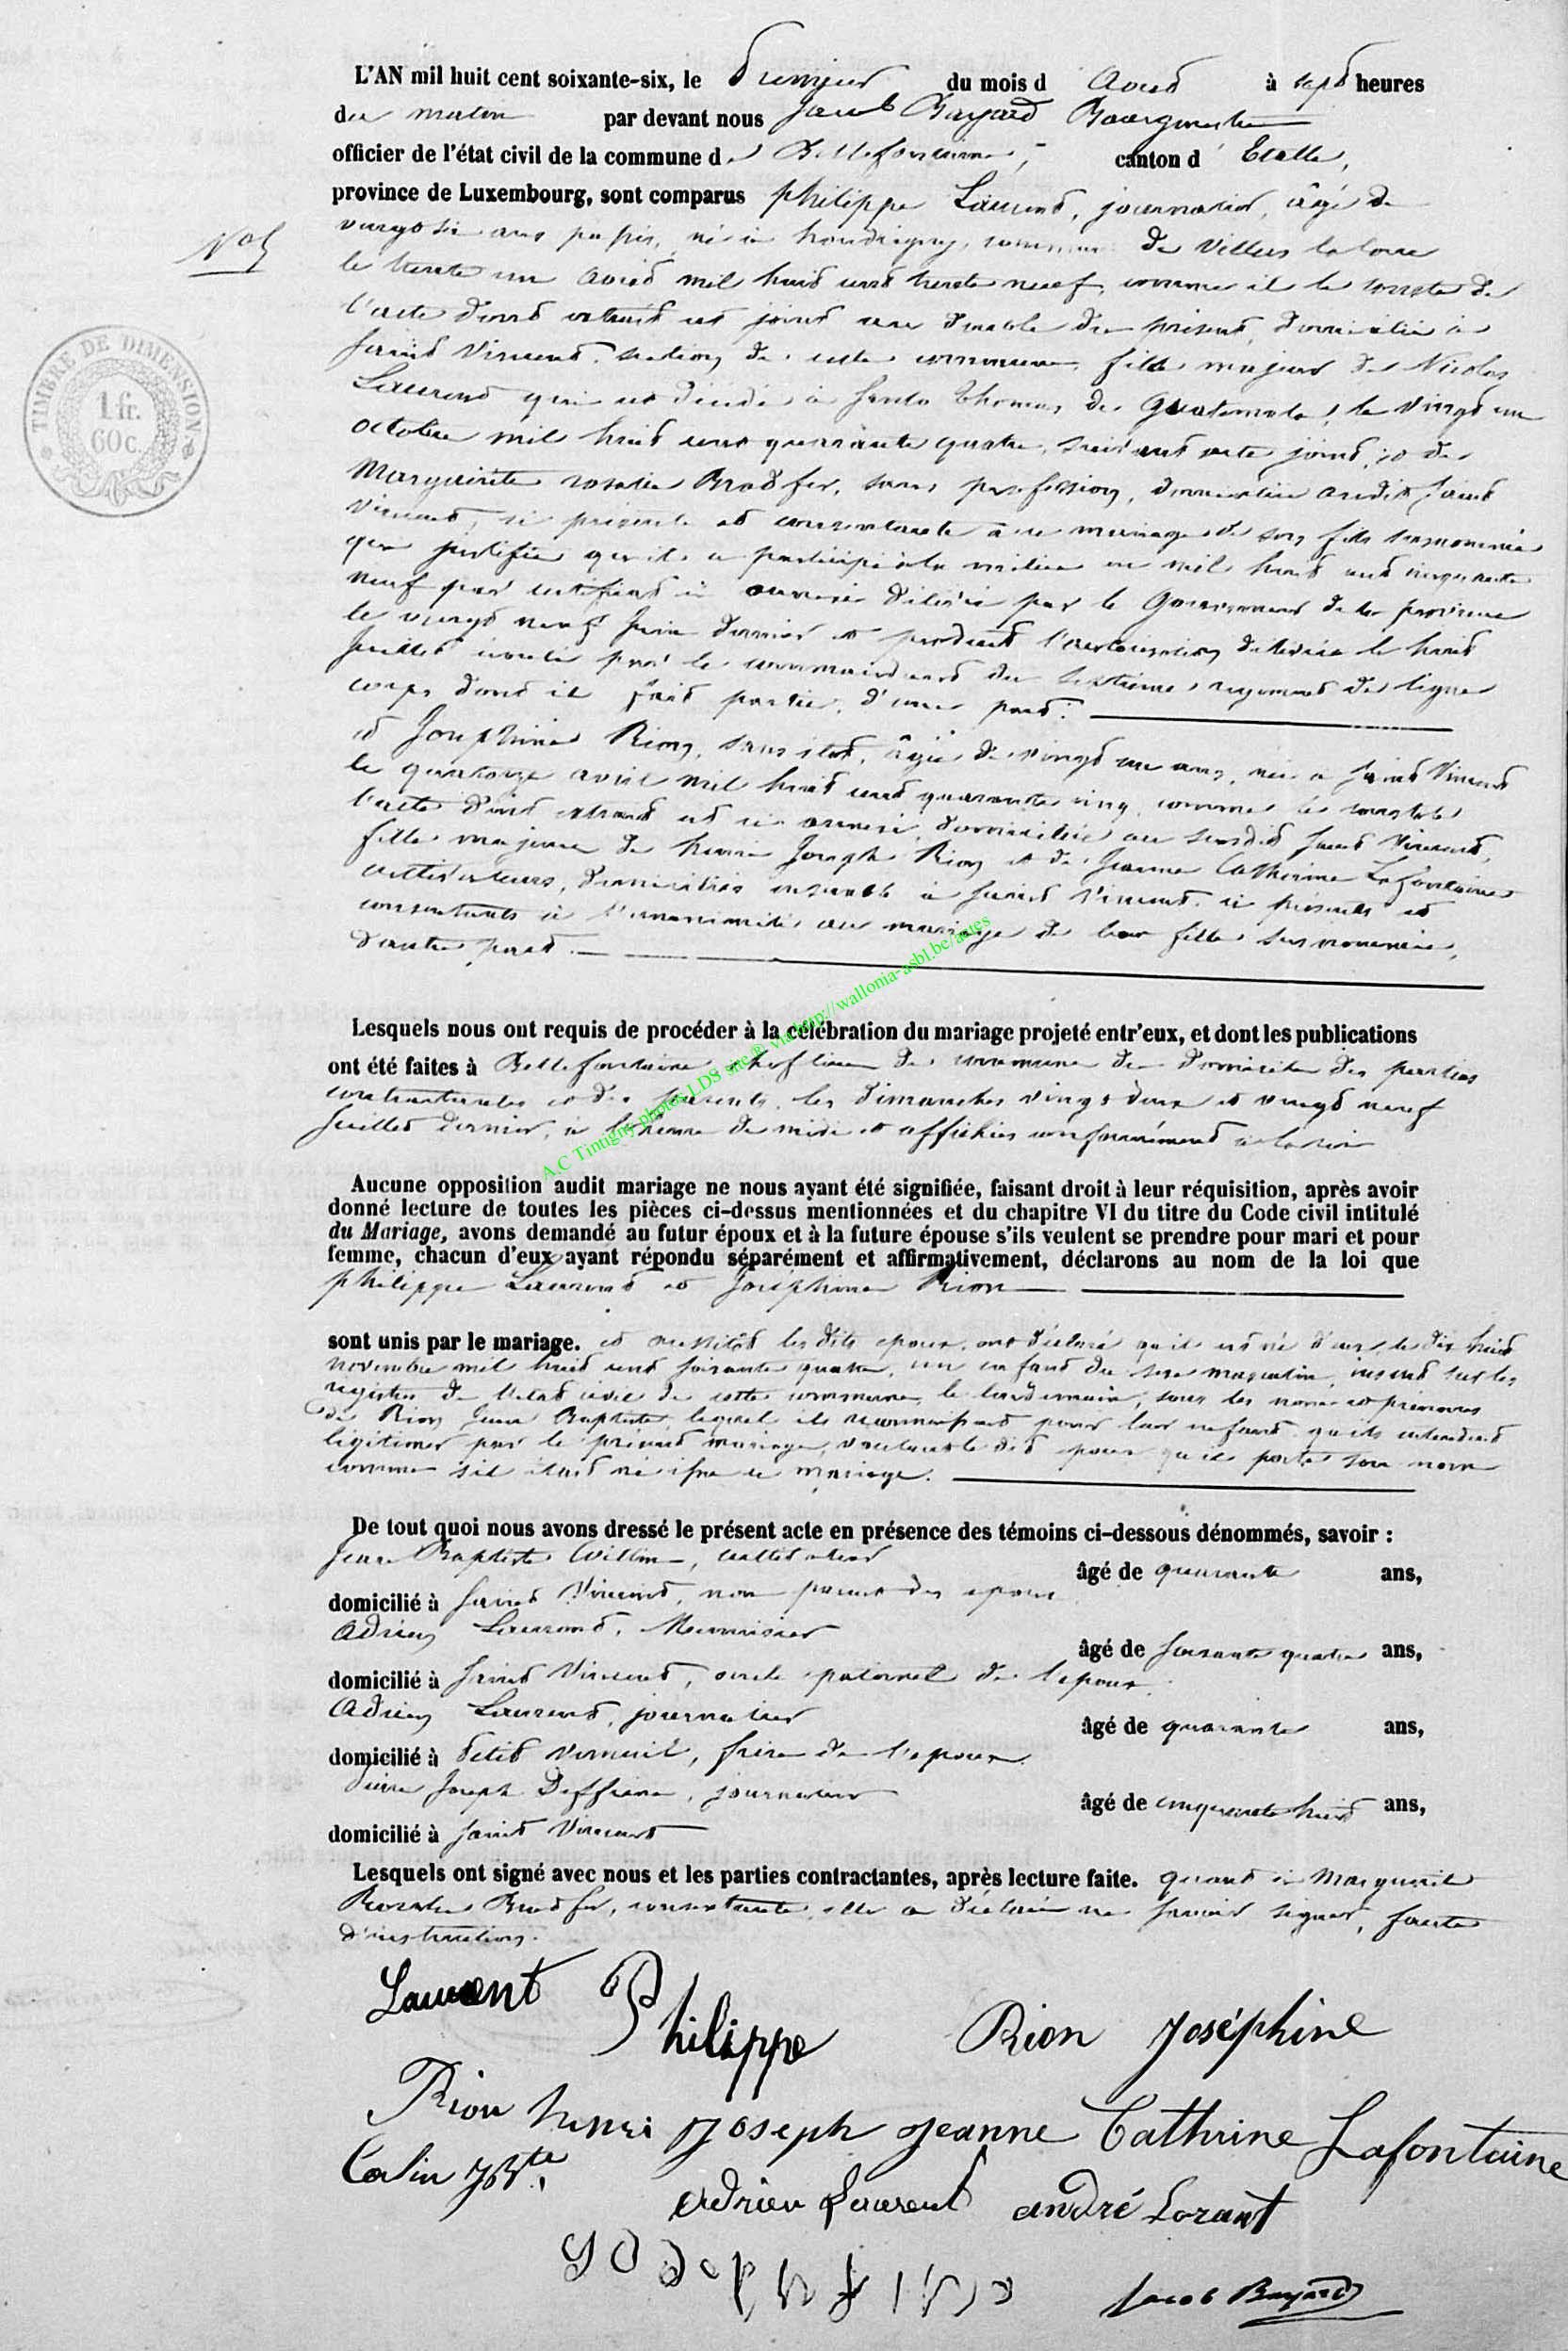 L'AN mil huit cent soixante-six, le premier du mois d Aout à sept heures
du matin par devant nous Jacob Bayard Bourgmestre
officier de l'état civil de la commune de Bellefontaine, canton d' Etalle,
province de Luxembourg, sont comparus philippe Laurent, journalier, âgé de
vingt six ans passés, né à houdrigny, commune de Villers la loue
N° 5
le trente un aout mil huit cent trente neuf, comme il le conste de
l'acte dont extrait est joint au double du présent, domicilié à
Saint Vincent, section de cette commune, fils majeur de Nicolas
Laurent qui est décédé à Santo Thomas de Guatemala, le vingt un
octobre mil huit cent quarante quatre, suivant acte joint, et de
Marguerite rosalie Brodfer, sans profession, domiciliée audit Saint
Vincent, ci présente et consentante à ce mariage de son fils susnommé
qui justifie qu'il a participé à la milice en mil huit cent cinquante
neuf par certificat ci annexé délivré par le Gouverneur de la province
le vingt neuf Juin dernier et produit l'autorisation délivrée le huit
Juillet écoulé par le commandant du septième régiment de ligne
corps dont il fait partie, d'une part.
et Joséphine Rion, sans état, âgée de vingt un ans, née à Saint Vincent
le quatorze avril mil huit cent quarante cinq, comme le constate
l'acte dont extrait est ci annexé, domiciliée au susdit Saint Vincent,
fille majeure de henri Joseph Rion et de Jeanne Catherine Lafontaine
cultivateurs, domiciliés ensemble à Saint Vincent, ci présents et
consentants à l'unanimité au mariage de leur fille susnommée,
d'autre part.
Lesquels nous ont requis de procéder à la célébration du mariage projeté entr'eux, et dont les publications
ont été faites à Bellefontaine chef lieu de commune du domicile des parties
contractantes et des parents, les dimanches vingt deux et vingt neuf
Juillet dernier, à l'heure de midi et affichées conformément à la loi
Aucune opposition audit mariage ne nous ayant été signifiée, faisant droit à leur réquisition, après avoir
donné lecture de toutes les pièces ci-dessus mentionnées et du chapitre VI du titre du Code civil intitulé
du Mariage, avons demandé au futur époux et à la future épouse s'ils veulent se prendre pour mari et pour
femme, chacun d'eux ayant répondu séparément et affirmativement, déclarons au nom de la loi que
philippe Laurent et Joséphine Rion
sont unis par le mariage. et aussitôt les dits époux ont déclaré qu'il est né d'eux le dix huit
novembre mil huit cent soixante quatre, un enfant du sexe masculin, inscrit sur les
registres de l'état civil de cette commune, le lendemain, sous les noms et prénoms
de Rion Jean Baptiste lequel ils reconnaissent pour leur enfant qu'ils entendent
légitimer par le présent mariage, voulant le dit époux qu'il porte son nom
comme s'il était né ce mariage.
De tout quoi nous avons dressé le présent acte en présence des témoins ci-dessous dénommés, savoir :
Jean Baptiste cultivateur âgé de quarante ans,
domicilié à Saint Vincent, non parent des époux
Adrien Laurent, Menuisier âgé de soixante quatre ans,
domicilié à Saint Vincent, oncle paternel de l'époux.
Adrien Laurent, journalier âgé de quarante ans,
domicilié à Petit Verneuil, frère de l'époux.
Pierre Joseph journalier âgé de cinquante huit ans,
domicilié à Saint Vincent
Lesquels ont signé avec nous et les parties contractantes, après lecture faite. quant à Marguerite
Rosalie Brodfer, consentante, elle a déclaré ne savoir signer, faute
d'instruction.
Laurent Philippe Rion Joséphine
Rion henri Joseph Jeanne Cathrine Lafontaine
Colin JBte. Adrien Laurent andré Lorant
Jacob Bayard
TIMBRE DE DIMENSION
1 fr.
60 c.
A.C Tintigny photos LDS site @ via http://wallonia-asbl.be/actes